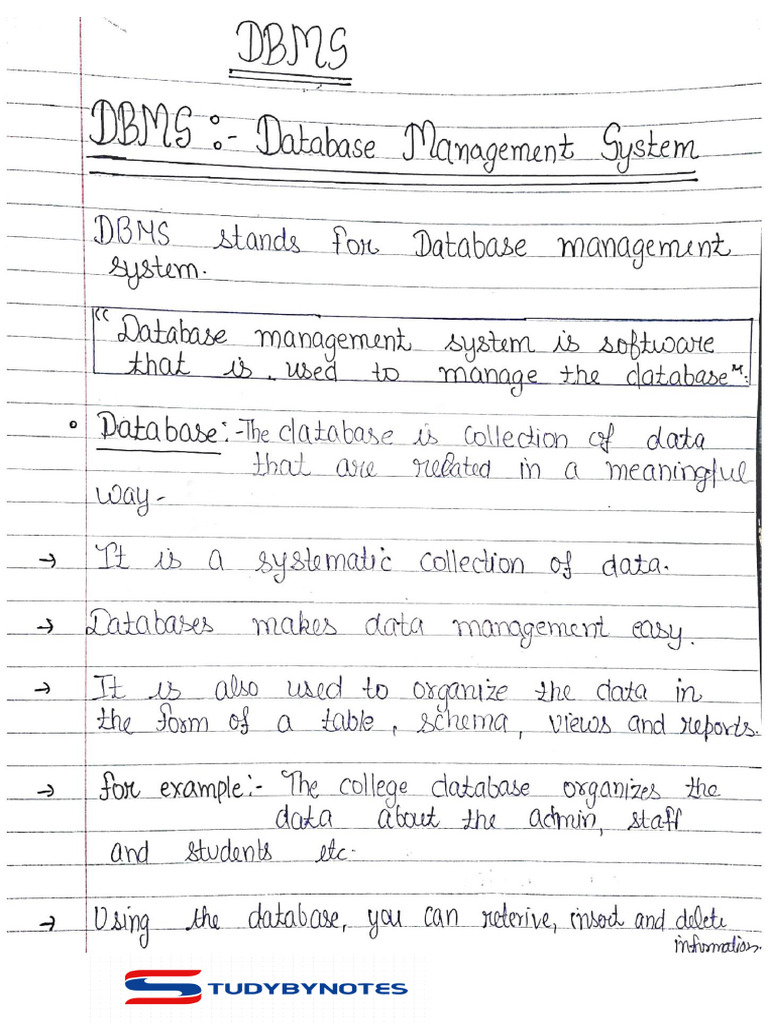 DBMS
DBMS :- Database Management System
DBMS stands for Database management
system.
“Database management system is software
that is used to manage the database”.
• Database :- The database is collection of data
that are related in a meaningful
way -
→ It is a systematic collection of data.
→ Databases makes data management easy.
→ It is also used to organize the data in
the form of a table, schema, views and reports.
→ for example :- The college database organizes the
data about the admin, staff
and students etc.
→ Using the database, you can reterive, insert and delete
information.
STUDYBYNOTES